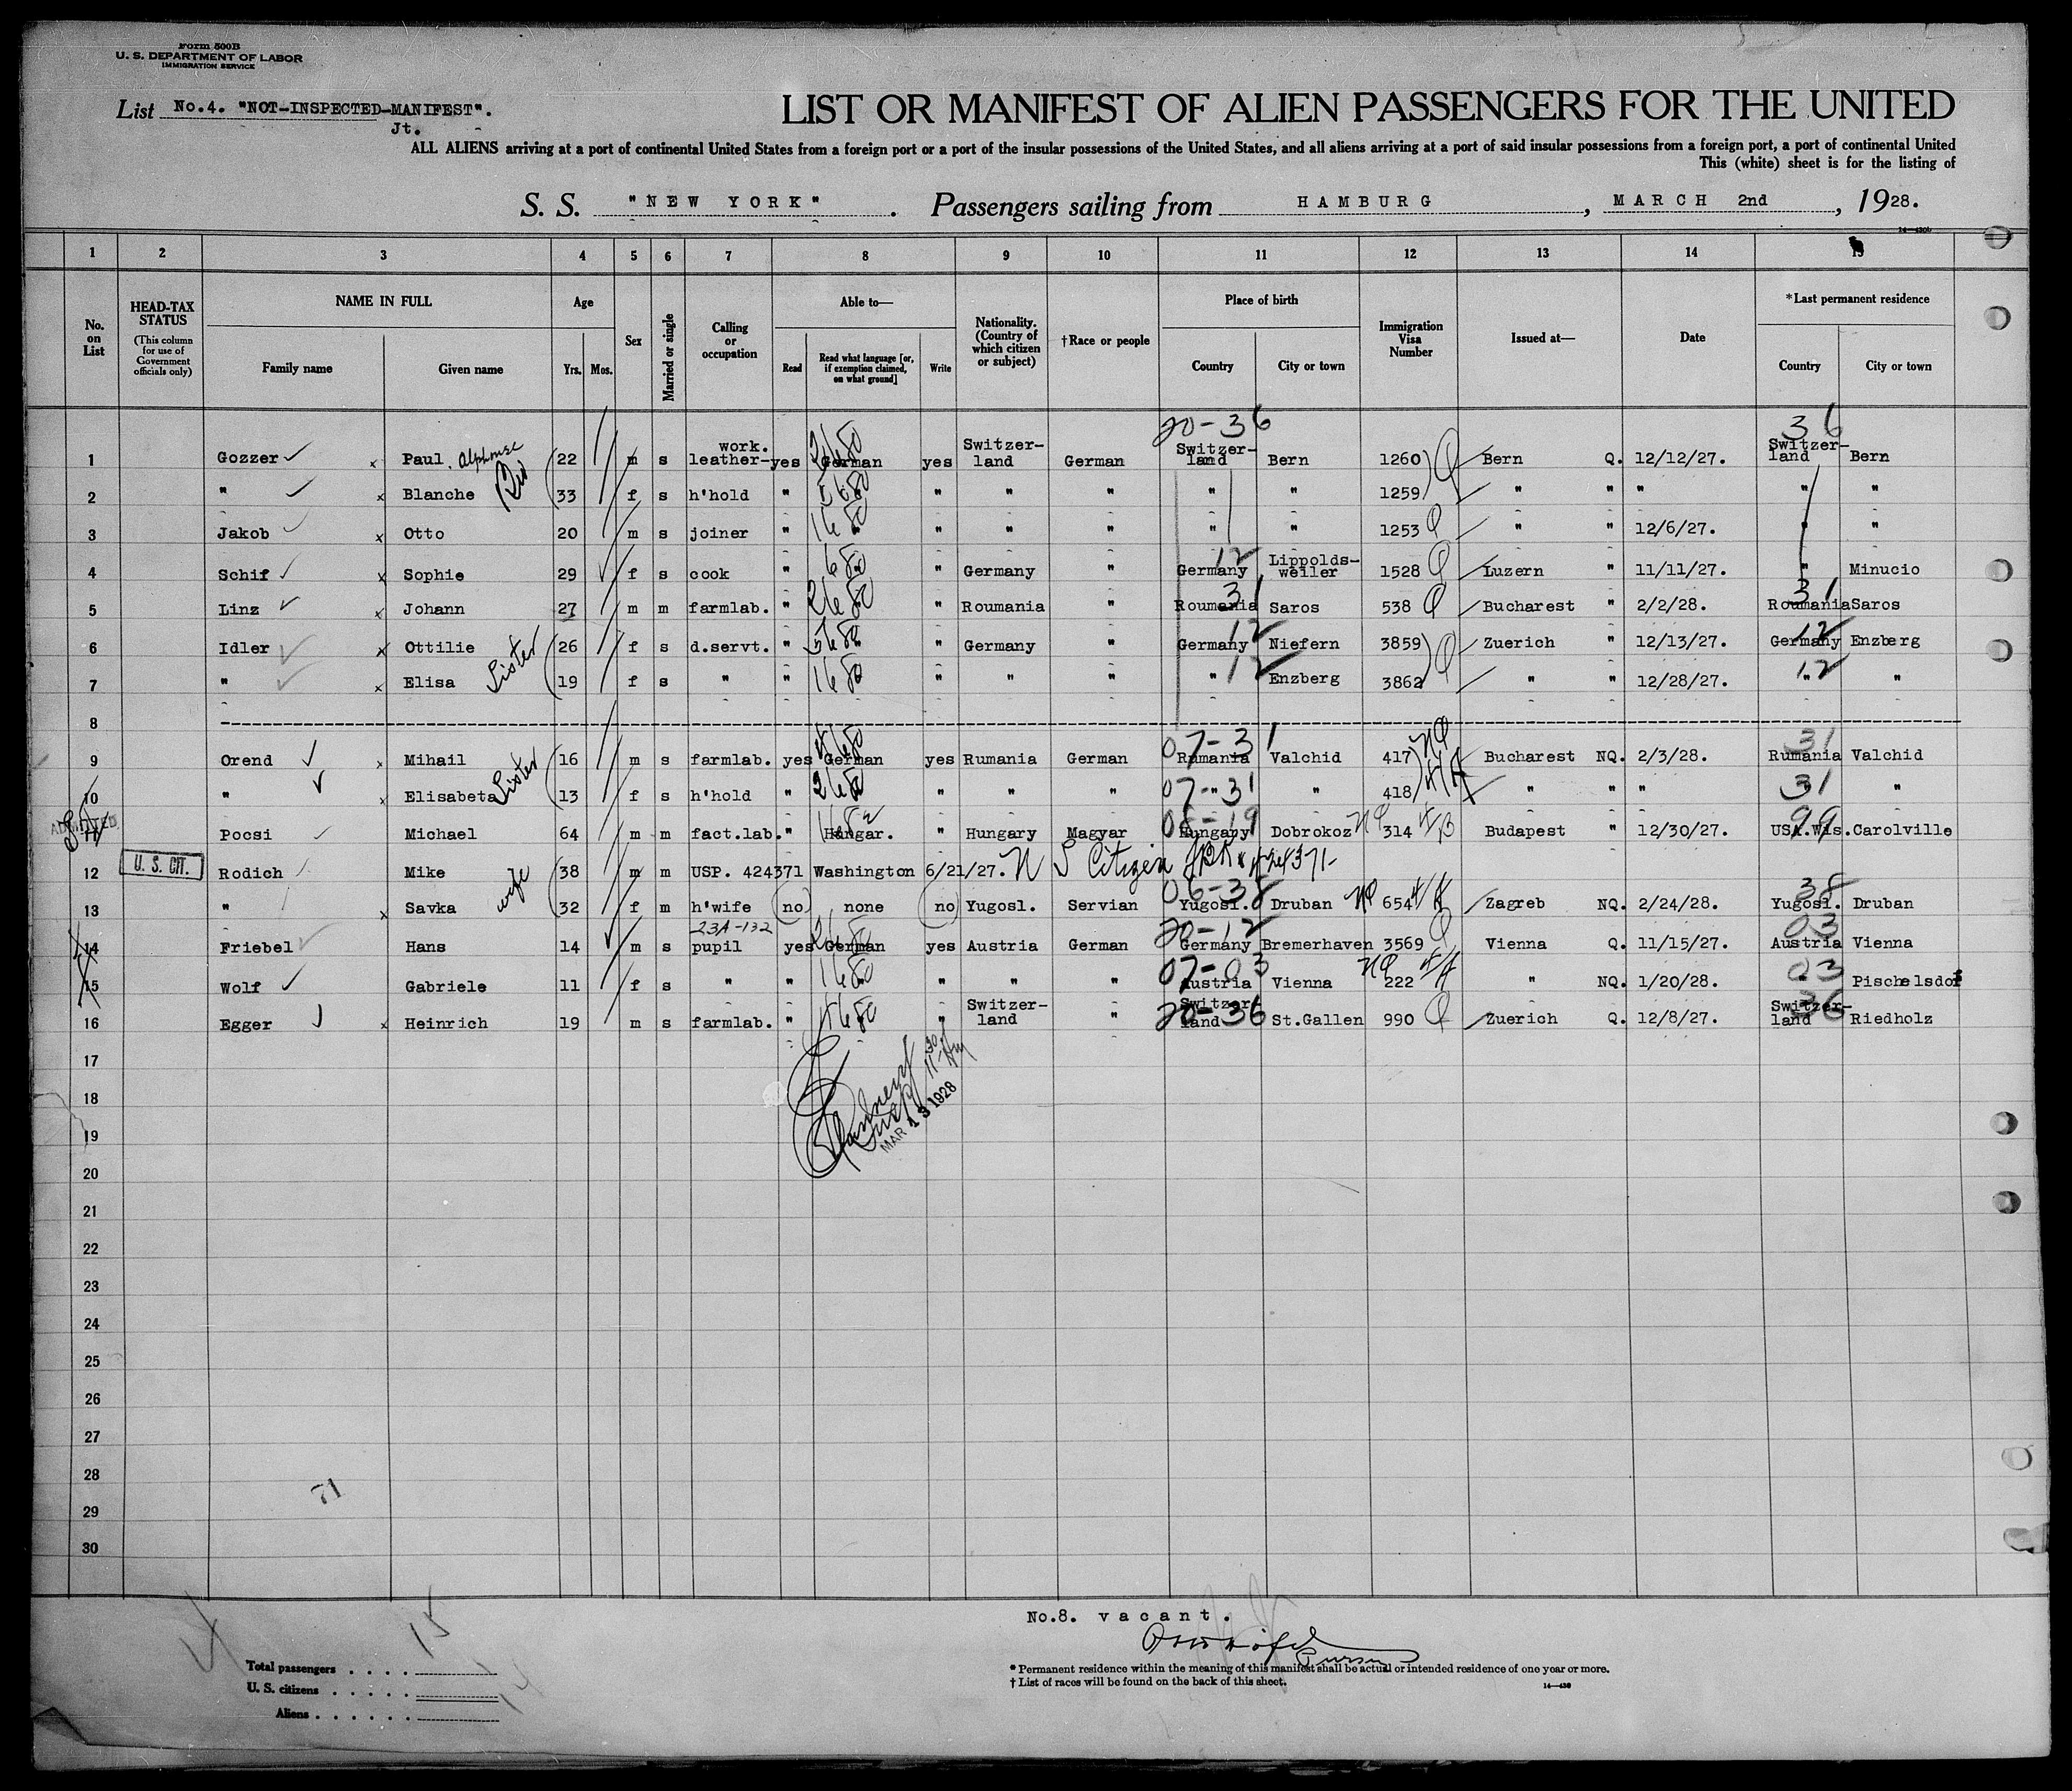 Form 500B
U. S. DEPARTMENT OF LABOR
IMMIGRATION SERVICE
List No.4. "NOT-INSPECTED-MANIFEST".
Jt.
LIST OR MANIFEST OF ALIEN PASSENGERS FOR THE UNITED
ALL ALIENS arriving at a port of continental United States from a foreign port or a port of the insular possessions of the United States, and all aliens arriving at a port of said insular possessions from a foreign port, a port of continental United
This (white) sheet is for the listing of
S. S. "NEW YORK". Passengers sailing from HAMBURG, MARCH 2nd, 1928.
14—430b
1 2 3 4 5 6 7 8 9 10 11 12 13 14 15
No. on List
HEAD-TAX STATUS
(This column for use of Government officials only)
NAME IN FULL
Family name Given name
Age
Yrs. Mos.
Sex
Married or single
Calling or occupation
Able to—
Read Read what language [or, if exemption claimed, on what ground] Write
Nationality. (Country of which citizen or subject)
†Race or people
Place of birth
Country City or town
Immigration Visa Number
Issued at—
Date
*Last permanent residence
Country City or town
20-36 36
1 Gozzer Paul, Alphonse 22 m s leather-work. yes German yes Switzer-land German Switzer-land Bern 1260 Q Bern Q. 12/12/27. Switzer-land Bern
2 " Blanche 33 f s h'hold " " " " " " " 1259 " " " " "
3 Jakob Otto 20 m s joiner " " " " " " 1253 Q " " 12/6/27. " "
4 Schif Sophie 29 f s cook " " Germany " Germany 12 Lippolds-weiler 1528 Q Luzern " 11/11/27. " Minucio
5 Linz Johann 27 m m farmlab. " " Roumania " Roumania 31 Saros 538 Q Bucharest " 2/2/28. Roumania 31 Saros
6 Idler Ottilie Sister 26 f s d.servt. " " Germany " Germany 12 Niefern 3859 Q Zuerich " 12/13/27. Germany 12 Enzberg
7 " Elisa 19 f s " " " " " " 12 Enzberg 3862 " " 12/28/27. " 12 "
8
9 Orend Mihail 16 m s farmlab. yes German yes Rumania German Rumania 07-31 Valchid 417 NQ Bucharest NQ. 2/3/28. Rumania 31 Valchid
10 " Elisabeta Sister 13 f s h'hold " " " " " 07-31 " 418 " " " 31 "
ADMITTED
11 Pocsi Michael 64 m m fact.lab. " Hungar. " Hungary Magyar Hungary Dobrokoz NQ 314 4/B Budapest " 12/30/27. USA.Wis. 99 Carolville
12 U. S. CIT. Rodich Mike 38 m m USP. 424371 Washington 6/21/27. U S Citizen
13 " Savka wife 32 f m h'wife no none no Yugosl. Servian Yugosl. 06-38 Druban NQ 654 Zagreb NQ. 2/24/28. Yugosl. 38 Druban
23A-132
14 Friebel Hans 14 m s pupil yes German yes Austria German Germany 20-12 Bremerhaven 3569 Q Vienna Q. 11/15/27. Austria 03 Vienna
15 Wolf Gabriele 11 f s " " " " " Austria 07-03 Vienna NQ 222 " NQ. 1/20/28. 03 Pischelsdof
16 Egger Heinrich 19 m s farmlab. " " Switzer-land " Switzer-land 20-36 St.Gallen 990 Q Zuerich Q. 12/8/27. Switzer-land 36 Riedholz
17
MAR 13 1928
18
19
20
21
22
23
24
25
26
27
28
71
29
30
No.8. vacant.
15
Purser
Total passengers
U. S. citizens
Aliens
14
* Permanent residence within the meaning of this manifest shall be actual or intended residence of one year or more.
† List of races will be found on the back of this sheet.
14—430